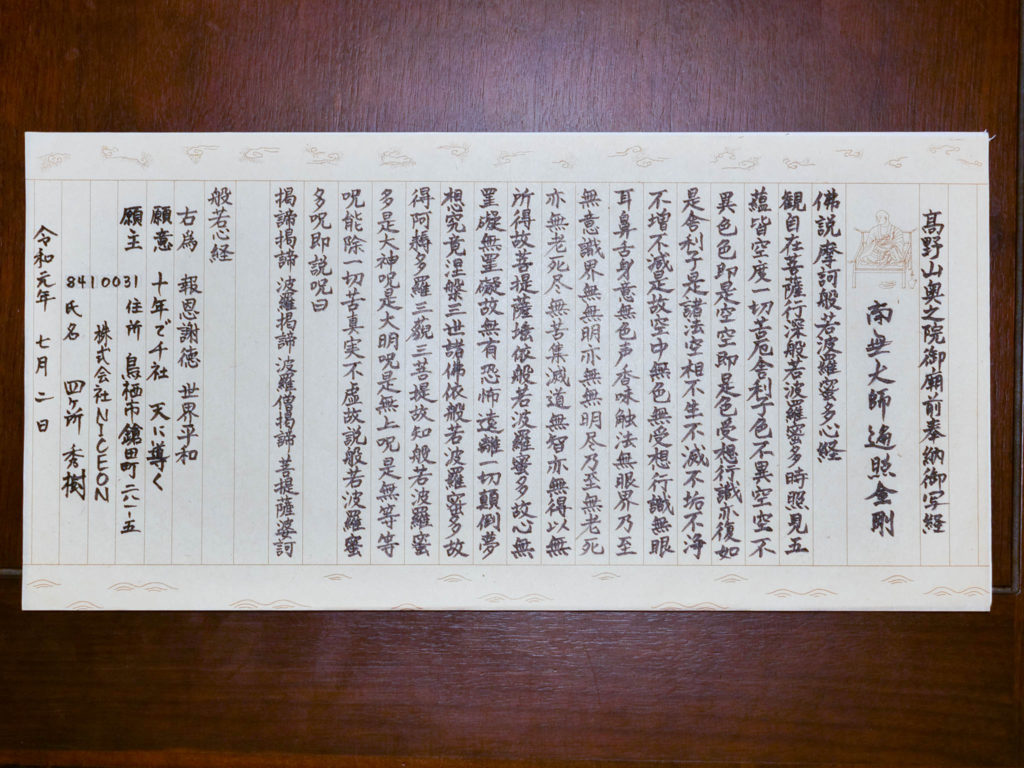 高野山奥之院御廟前奉納御写経
南無大師遍照金剛
佛説摩訶般若波羅蜜多心経
観自在菩薩行深般若波羅蜜多時照見五
蘊皆空度一切苦厄舎利子色不異空空不
異色色即是空空即是色受想行識亦復如
是舎利子是諸法空相不生不滅不垢不浄
不増不減是故空中無色無受想行識無眼
耳鼻舌身意無色声香味触法無眼界乃至
無意識界無無明亦無無明尽乃至無老死
亦無老死尽無苦集滅道無智亦無得以無
所得故菩提薩埵依般若波羅蜜多故心無
罣礙無罣礙故無有恐怖遠離一切顛倒夢
想究竟涅槃三世諸佛依般若波羅蜜多故
得阿耨多羅三藐三菩提故知般若波羅蜜
多是大神呪是大明呪是無上呪是無等等
呪能除一切苦真実不虚故説般若波羅蜜
多呪即説呪曰
掲諦掲諦 波羅掲諦 波羅僧掲諦 菩提薩婆訶
般若心経
右為 報恩謝徳 世界平和
願意 十年で千社 天に尊く
願主 8410031 住所 鳥栖市鎗田町六八-五
株式会社NICEON
氏名 四ヶ所 秀樹
令和元年 七月 二日